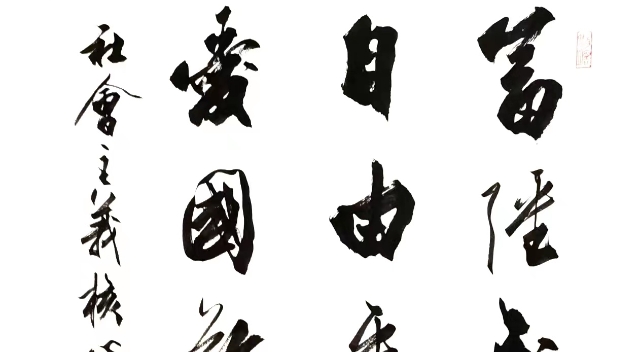 富强
自由
愛國
社會主義核